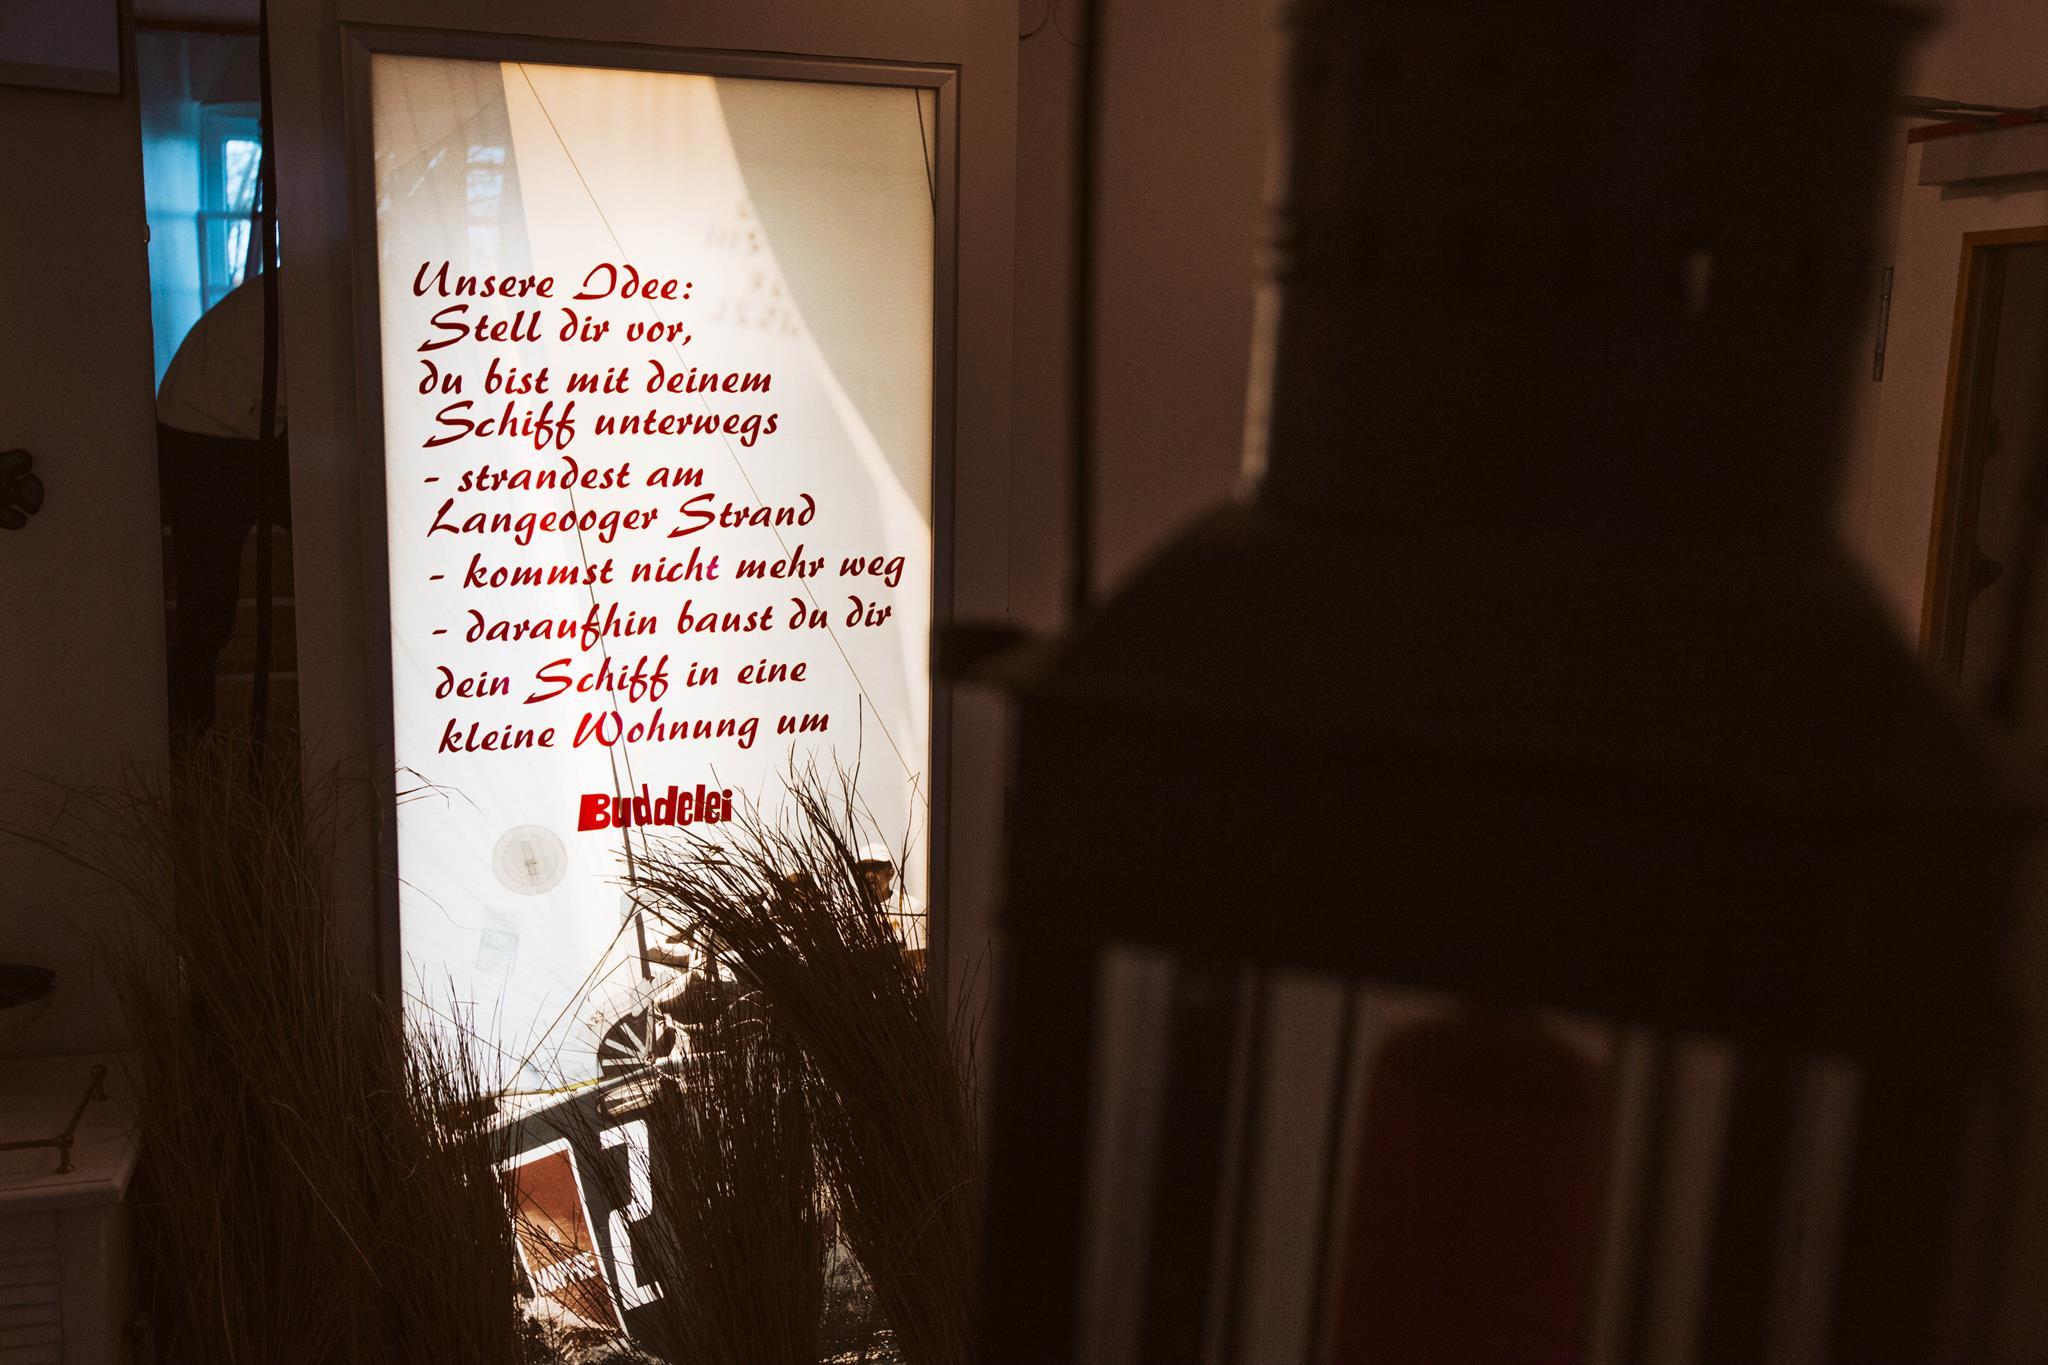 Unsere Idee:
Stell dir vor,
du bist mit deinem
Schiff unterwegs
- strandest am
Langeooger Strand
- kommst nicht mehr weg
- daraufhin baust du dir
dein Schiff in eine
kleine Wohnung um
Buddelei
2